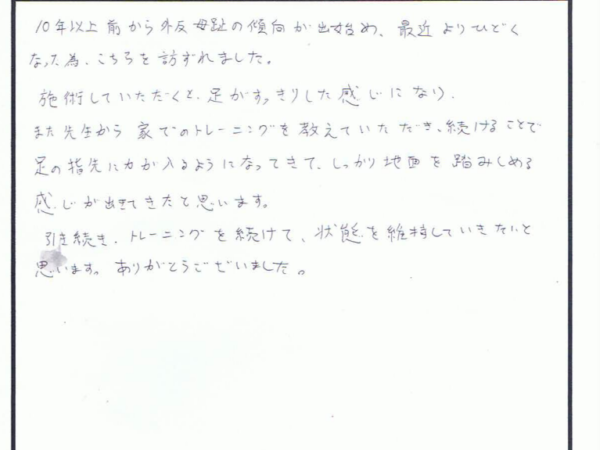 10年以上前から外反母趾の傾向が出始め、最近よりひどく
なった為、こちらを訪ずれました。
施術していただくと、足がすっきりした感じになり、
また先生から家でのトレーニングを教えていただき、続けることで
足の指先に力が入るようになってきて、しっかり地面を踏みしめる
感じが出きてきたと思います。
引き続き、トレーニングを続けて、状態を維持していきたいと
思います。ありがとうございました。